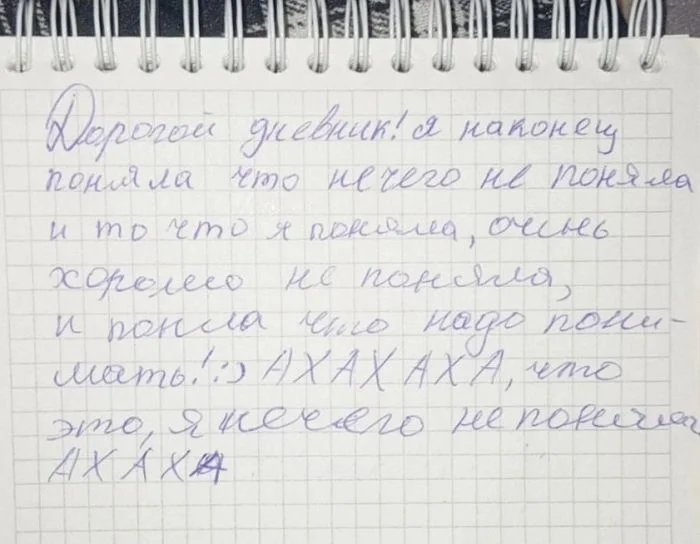 Дорогой дневник! я наконец
поняла что нечего не поняла
и то что я поняла, очень
хорошо не поняла,
и поняла что надо пони-
мать! :) АХАХАХА, что
это, я нечего не поняла
АХАХА